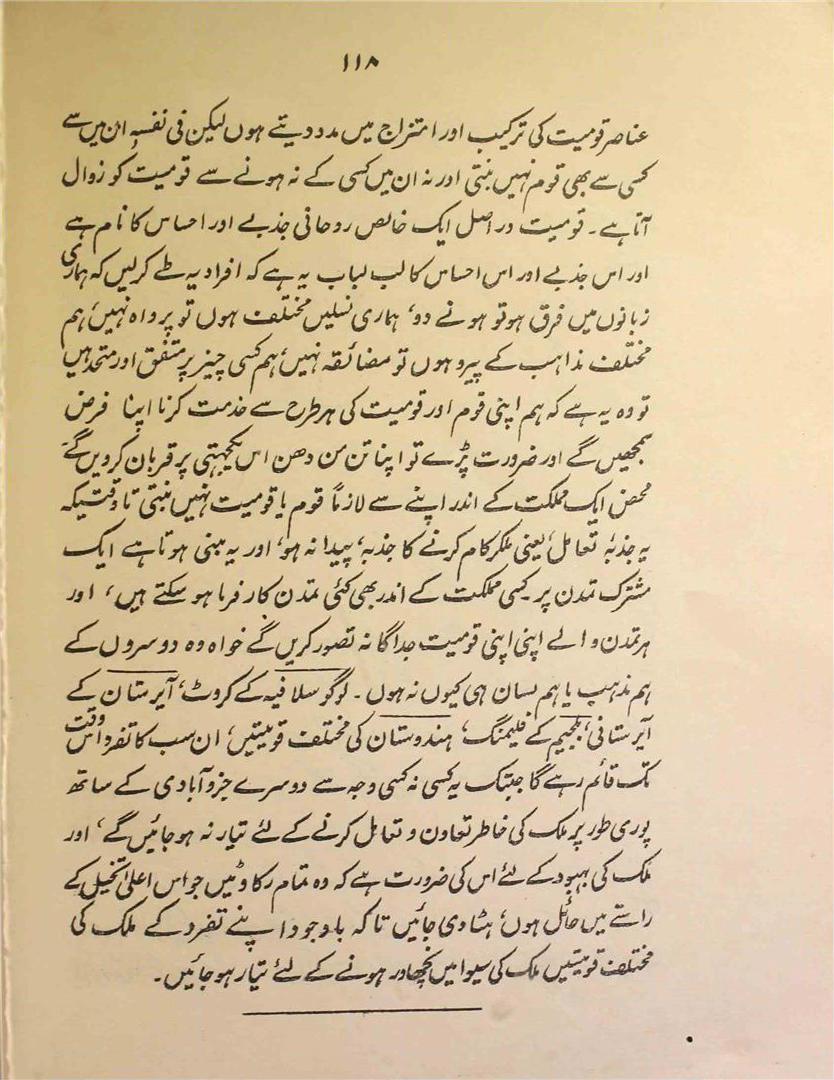 ۱۱۸
عناصر قومیت کی ترکیب اور امتزاج میں مدد دیتے ہوں لیکن فی نفسہٖ ان میں سے
کسی سے بھی قوم نہیں بنتی اور نہ ان میں کسی کے نہ ہونے سے قومیت کو زوال
آتا ہے۔ قومیت در اصل ایک خالص روحانی جذبے اور احساس کا نام ہے
اور اس جذبے اور اس احساس کا لب لباب یہ ہے کہ افراد یہ طے کرلیں کہ ہماری
زبانوں میں فرق ہو تو ہونے دو، ہماری نسلیں مختلف ہوں تو پرواہ نہیں، ہم
مختلف مذاہب کے پیرو ہوں تو مضائقہ نہیں، ہم کسی چیز پر متفق اور متحد ہیں
تو وہ یہ ہے کہ ہم اپنی قوم اور قومیت کی ہر طرح سے خدمت کرنا اپنا فرض
سمجھیں گے اور ضرورت پڑے تو اپنا تن من دھن اس یکجہتی پر قربان کر دیں گے
محض ایک مملکت کے اندر بسنے سے لازماً قوم یا قومیت نہیں بنتی تا وقتیکہ
یہ جذبۂ تعامل، یعنی ملکر کام کرنے کا جذبہ، پیدا نہ ہو، اور یہ مبنی ہوتا ہے ایک
مشترک تمدن پر۔ کسی مملکت کے اندر بھی کئی تمدن کار فرما ہو سکتے ہیں، اور
ہر تمدن والے اپنی اپنی قومیت جداگانہ تصور کریں گے خواہ وہ دوسروں کے
ہم مذہب یا ہم لسان ہی کیوں نہ ہوں۔ لوگو سلافیہ کے کروٹ، آیرستان کے
آیرستانی، بلجیم کے فلیمنگ، ہندوستان کی مختلف قومیتیں، ان سب کا تفرد اس وقت
تک قائم رہے گا جبتک یہ کسی نہ کسی وجہ سے دوسرے جزو آبادی کے ساتھ
پوری طور پر ملک کی خاطر تعاون و تعامل کرنے کے لئے تیار نہ ہو جائیں گے، اور
ملک کی بہبود کے لئے اس کی ضرورت ہے کہ وہ تمام رکاوٹیں جو اس اعلیٰ تخیل کے
راستے میں حائل ہوں، ہٹا دی جائیں تا کہ باوجود اپنے تفرد کے ملک کی
مختلف قومیتیں ملک کی سیوا میں نچھاور ہونے کے لئے تیار ہو جائیں۔